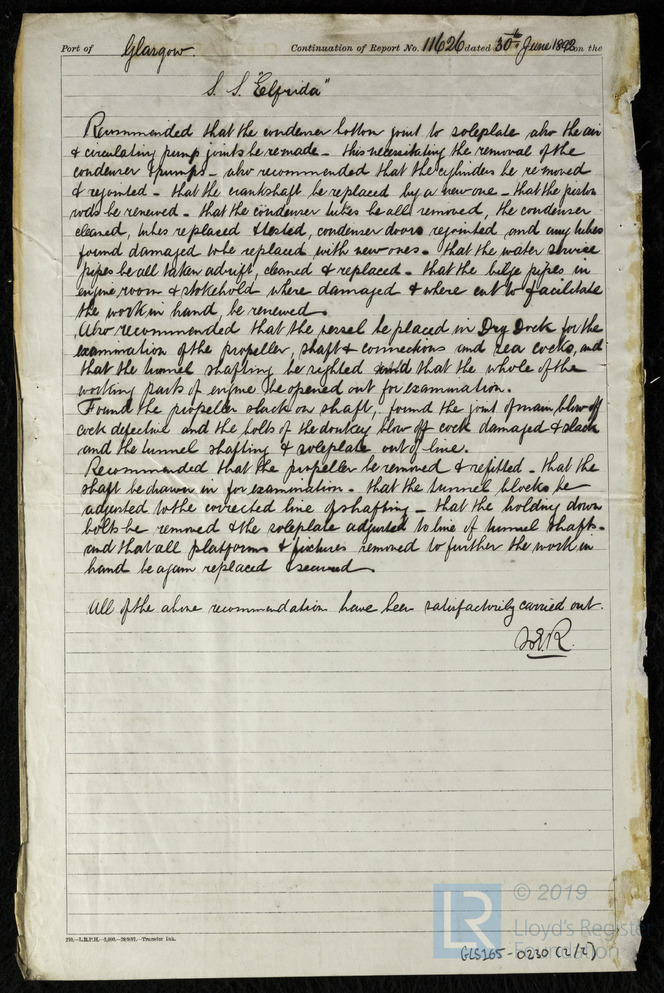 Port of Glasgow. Continuation of Report No. 11626 dated 30th June 1892 on the
S. S. "Elfrida"
Recommended that the condenser bottom joint to soleplate also the air
& circulating pump joints be remade – this necessitating the removal of the
condenser & pumps – also recommended that the cylinders be removed
& rejointed – that the crankshaft be replaced by a new one – that the piston
rods be renewed – that the condenser tubes be all removed, the condenser
cleaned, tubes replaced & tested, condenser doors rejointed and any tubes
found damaged to be replaced with new ones – that the water service
pipes be all taken adrift, cleaned & replaced – that the bilge pipes in
engine room & stokehold where damaged & where cut to facilitate
the work in hand, be renewed.
Also recommended that the vessel be placed in Dry Dock for the
examination of the propeller, shaft & connections and sea cocks, and
that the tunnel shafting be sighted and that the whole of the
working parts of engine be opened out for examination.
Found the propeller slack on shaft, found the joint of main blow off
cock defective and the bolts of the donkey blow off cock damaged & slack
and the tunnel shafting & soleplate out of line.
Recommended that the propeller be removed & refitted – that the
shaft be drawn in for examination – that the tunnel blocks be
adjusted to the corrected line of shafting – that the holding down
bolts be removed & the soleplate adjusted to line of tunnel shaft –
and that all platforms & fixtures removed to further the work in
hand be again replaced & secured.
All of the above recommendation have been satisfactorily carried out.
R
© 2019
LR
Lloyd's Register
Foundation
GLS165-0230 (2/2)